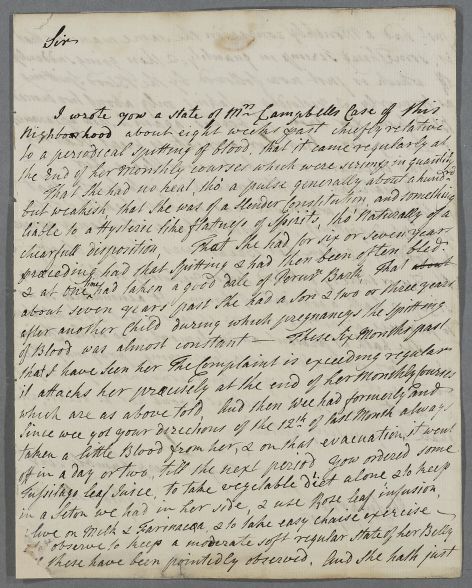 Sir
I wrote you a state of Mrs Campbells Case of this
Nighborhood about eight weeks past chiefly relative
to a periodical spitting of blood, that it came regularly at
the End of her Monthly courses which were scrimp in quantity
That she had no heat, tho' a pulse generally about a hundrd
but weakish, that she was of a slender Constitution, and something
liable to a Hysteric like flatness of Spirit, tho' Naturally of a
chearfull disposition, That she had for six or seven years
preceeding had that Spitting & had then been often bled
& at one time had taken a good dale of Peruvn Bark, That about
about seven years past she had a Son & two or three years
after another Child during which pregnancys the Spitting
of Blood was almost constant — These Six Months past
that I have seen her The Complaint is exceeding regular
it attacks her precisely at the end of her Monthly Courses
which are as above told, And then wee had formerly and
Since wee got your directions of the 12th of last Month always
taken a little Blood from her, & on that evacuation, it went
off in a day or two, till the next period you ordered some
Tusilago leaf Juice, to take vegetable diet alone & to keep
in a Seton we had in her side, & use Rose leaf infusion,
live on Milk & Farinacea & to take easy chaise exercise —
& observe to keep a moderate soft regular State of her Belly
These have been pointedly observed, And she hath just